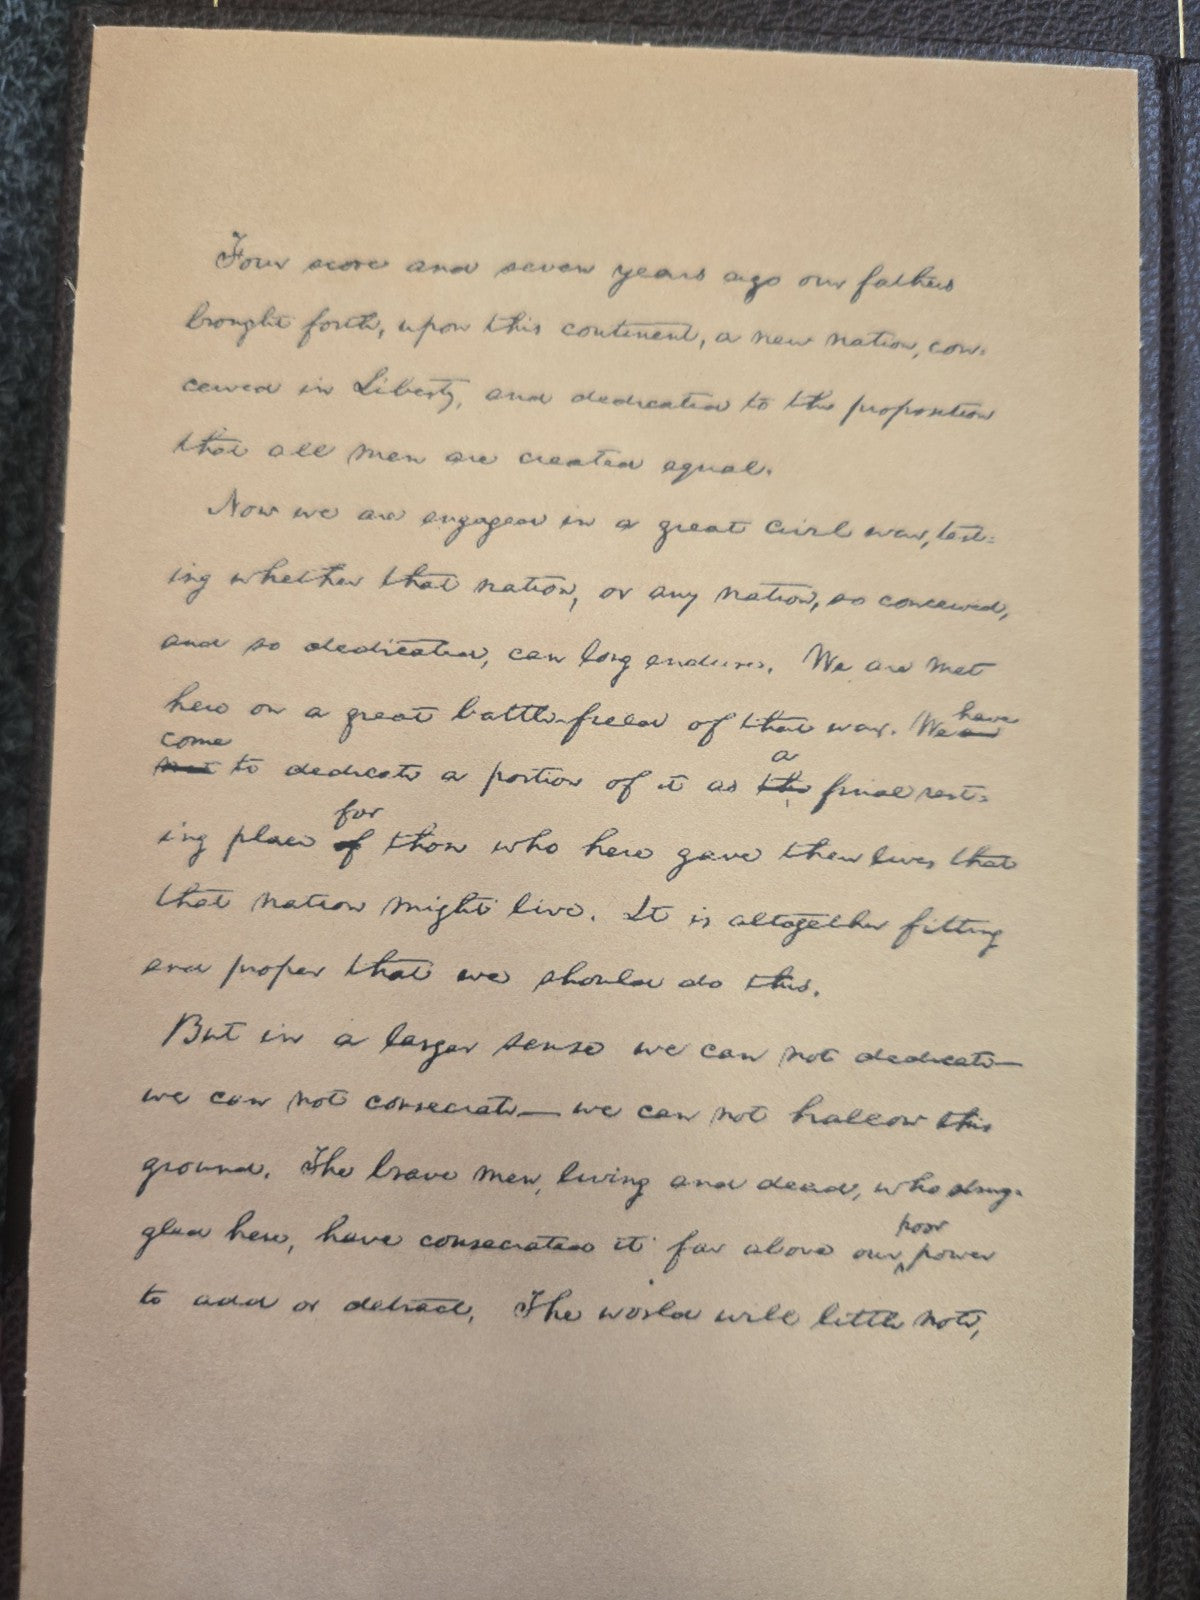 Four score and seven years ago our fathers
brought forth, upon this continent, a new nation, con-
ceived in Liberty, and dedicated to the proposition
that all men are created equal.
Now we are engaged in a great civil war, test-
ing whether that nation, or any nation, so conceived,
and so dedicated, can long endure. We are met
here on a great battle-field of that war. We are have
come
met to dedicate a portion of it as the a final rest-
ing place of for those who here gave their lives that
that nation might live. It is altogether fitting
and proper that we should do this.
But in a larger sense we can not dedicate—
we can not consecrate— we can not hallow this
ground. The brave men, living and dead, who strug-
gled here, have consecrated it far above our poor power
to add or detract. The world will little note,